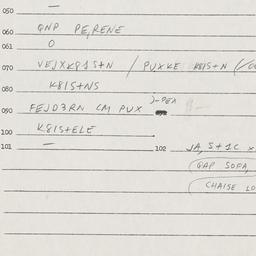 050 —
060 QNP PE,RENE
061 O
070 VEJXK81S+N / PUXKE K81S+N
080 K81S+NS
090 FEJD3RN CM PUX J-PEA
100 K81S+ELE
101 — 102 JA, S+1C x
GAP SOFA,
CHAISE LO